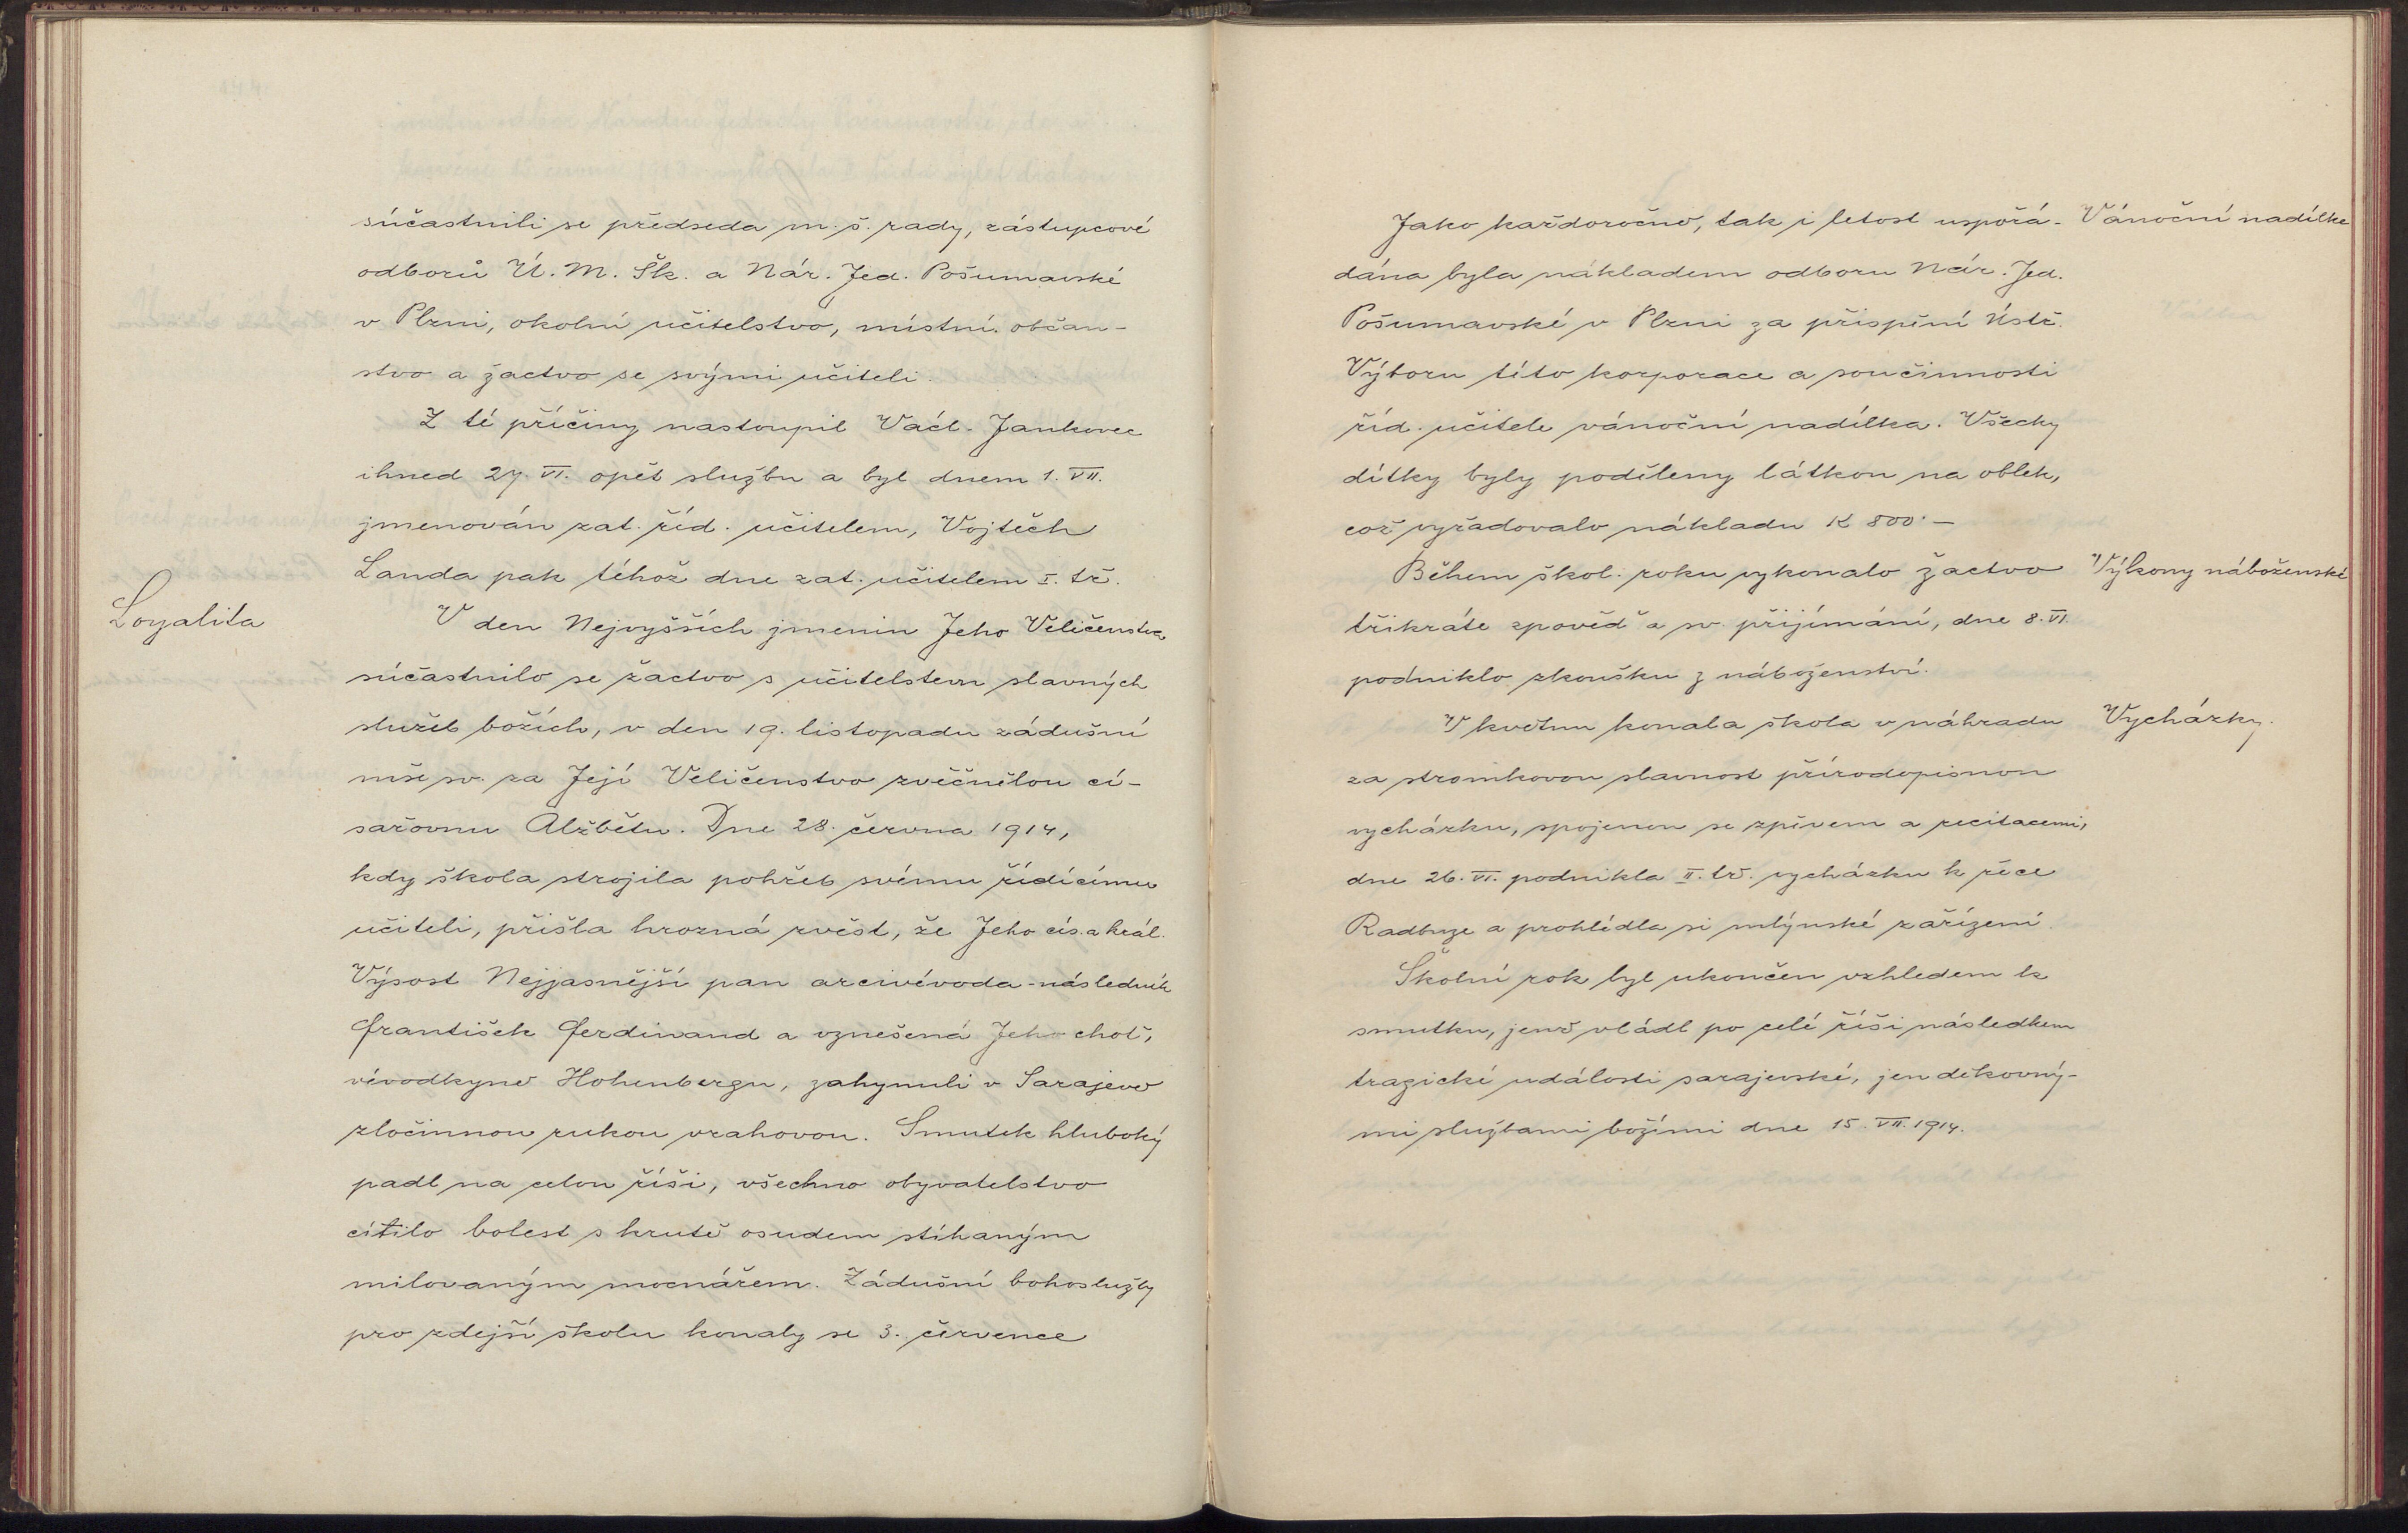 súčastnili se předseda m. š. rady, zástupcové
odborů Ú. M. Šk. a Nár. Jed. Pošumavské
v Plzni, okolní učitelstvo, místní občan-
stvo a žactvo se svými učiteli.
Z té příčiny nastoupil Václ. Jankovec
ihned 27. VI. opět službu a byl dnem 1. VII.
jmenován zat. říd. učitelem, Vojtěch
Landa pak téhož dne zat. učitelem I. tř.
Loyalita
V den Nejvyšších jmenin Jeho Veličenstva
súčastnilo se žactvo s učitelstvem slavných
služeb božích, v den 19. listopadu zádušní
mše sv. za Její Veličenstvo zvěčnělou cí-
sařovnu Alžbětu. Dne 28. června 1914,
kdy škola strojila pohřeb svému řídícímu
učiteli, přišla hrozná zvěst, že Jeho cís. a král.
Výsost Nejjasnější pan arcivévoda-následník
František Ferdinand a vznešená Jeho choť,
vévodkyně Hohenbergu, zahynuli v Sarajevě
zločinnou rukou vrahovou. Smutek hluboký
padl na celou říši, všechno obyvatelstvo
cítilo bolest s krutě osudem stíhaným
milovaným mocnářem. Zádušní bohoslužby
pro zdejší školu konaly se 3. července
Jako každoročně, tak i letost uspořá-
Vánoční nadílka
dána byla nákladem odboru Nár. Jed.
Pošumavské v Plzni za přispění Ústř.
Výboru této korporace a součinnosti
říd. učitele vánoční nadílka. Všecky
dítky byly poděleny látkou na oblek,
což vyžadovalo nákladu K 800·–
Během škol. roku vykonalo žactvo
Výkony náboženské
třikráte zpověď a sv. přijímání, dne 8. VI.
podniklo zkoušku z náboženství.
V květnu konala škola v náhradu
Vycházky.
za stromkovou slavnost přírodopisnou
vycházku, spojenou se zpěvem a recitacemi,
dne 26. VI. podnikla II. tř. vycházku k řece
Radbuze a prohlédla si mlýnské zařízení.
Školní rok byl ukončen vzhledem k
smutku, jenž vládl po celé říši následkem
tragické události sarajevské, jen děkovný-
mi službami božími dne 15. VII. 1914.